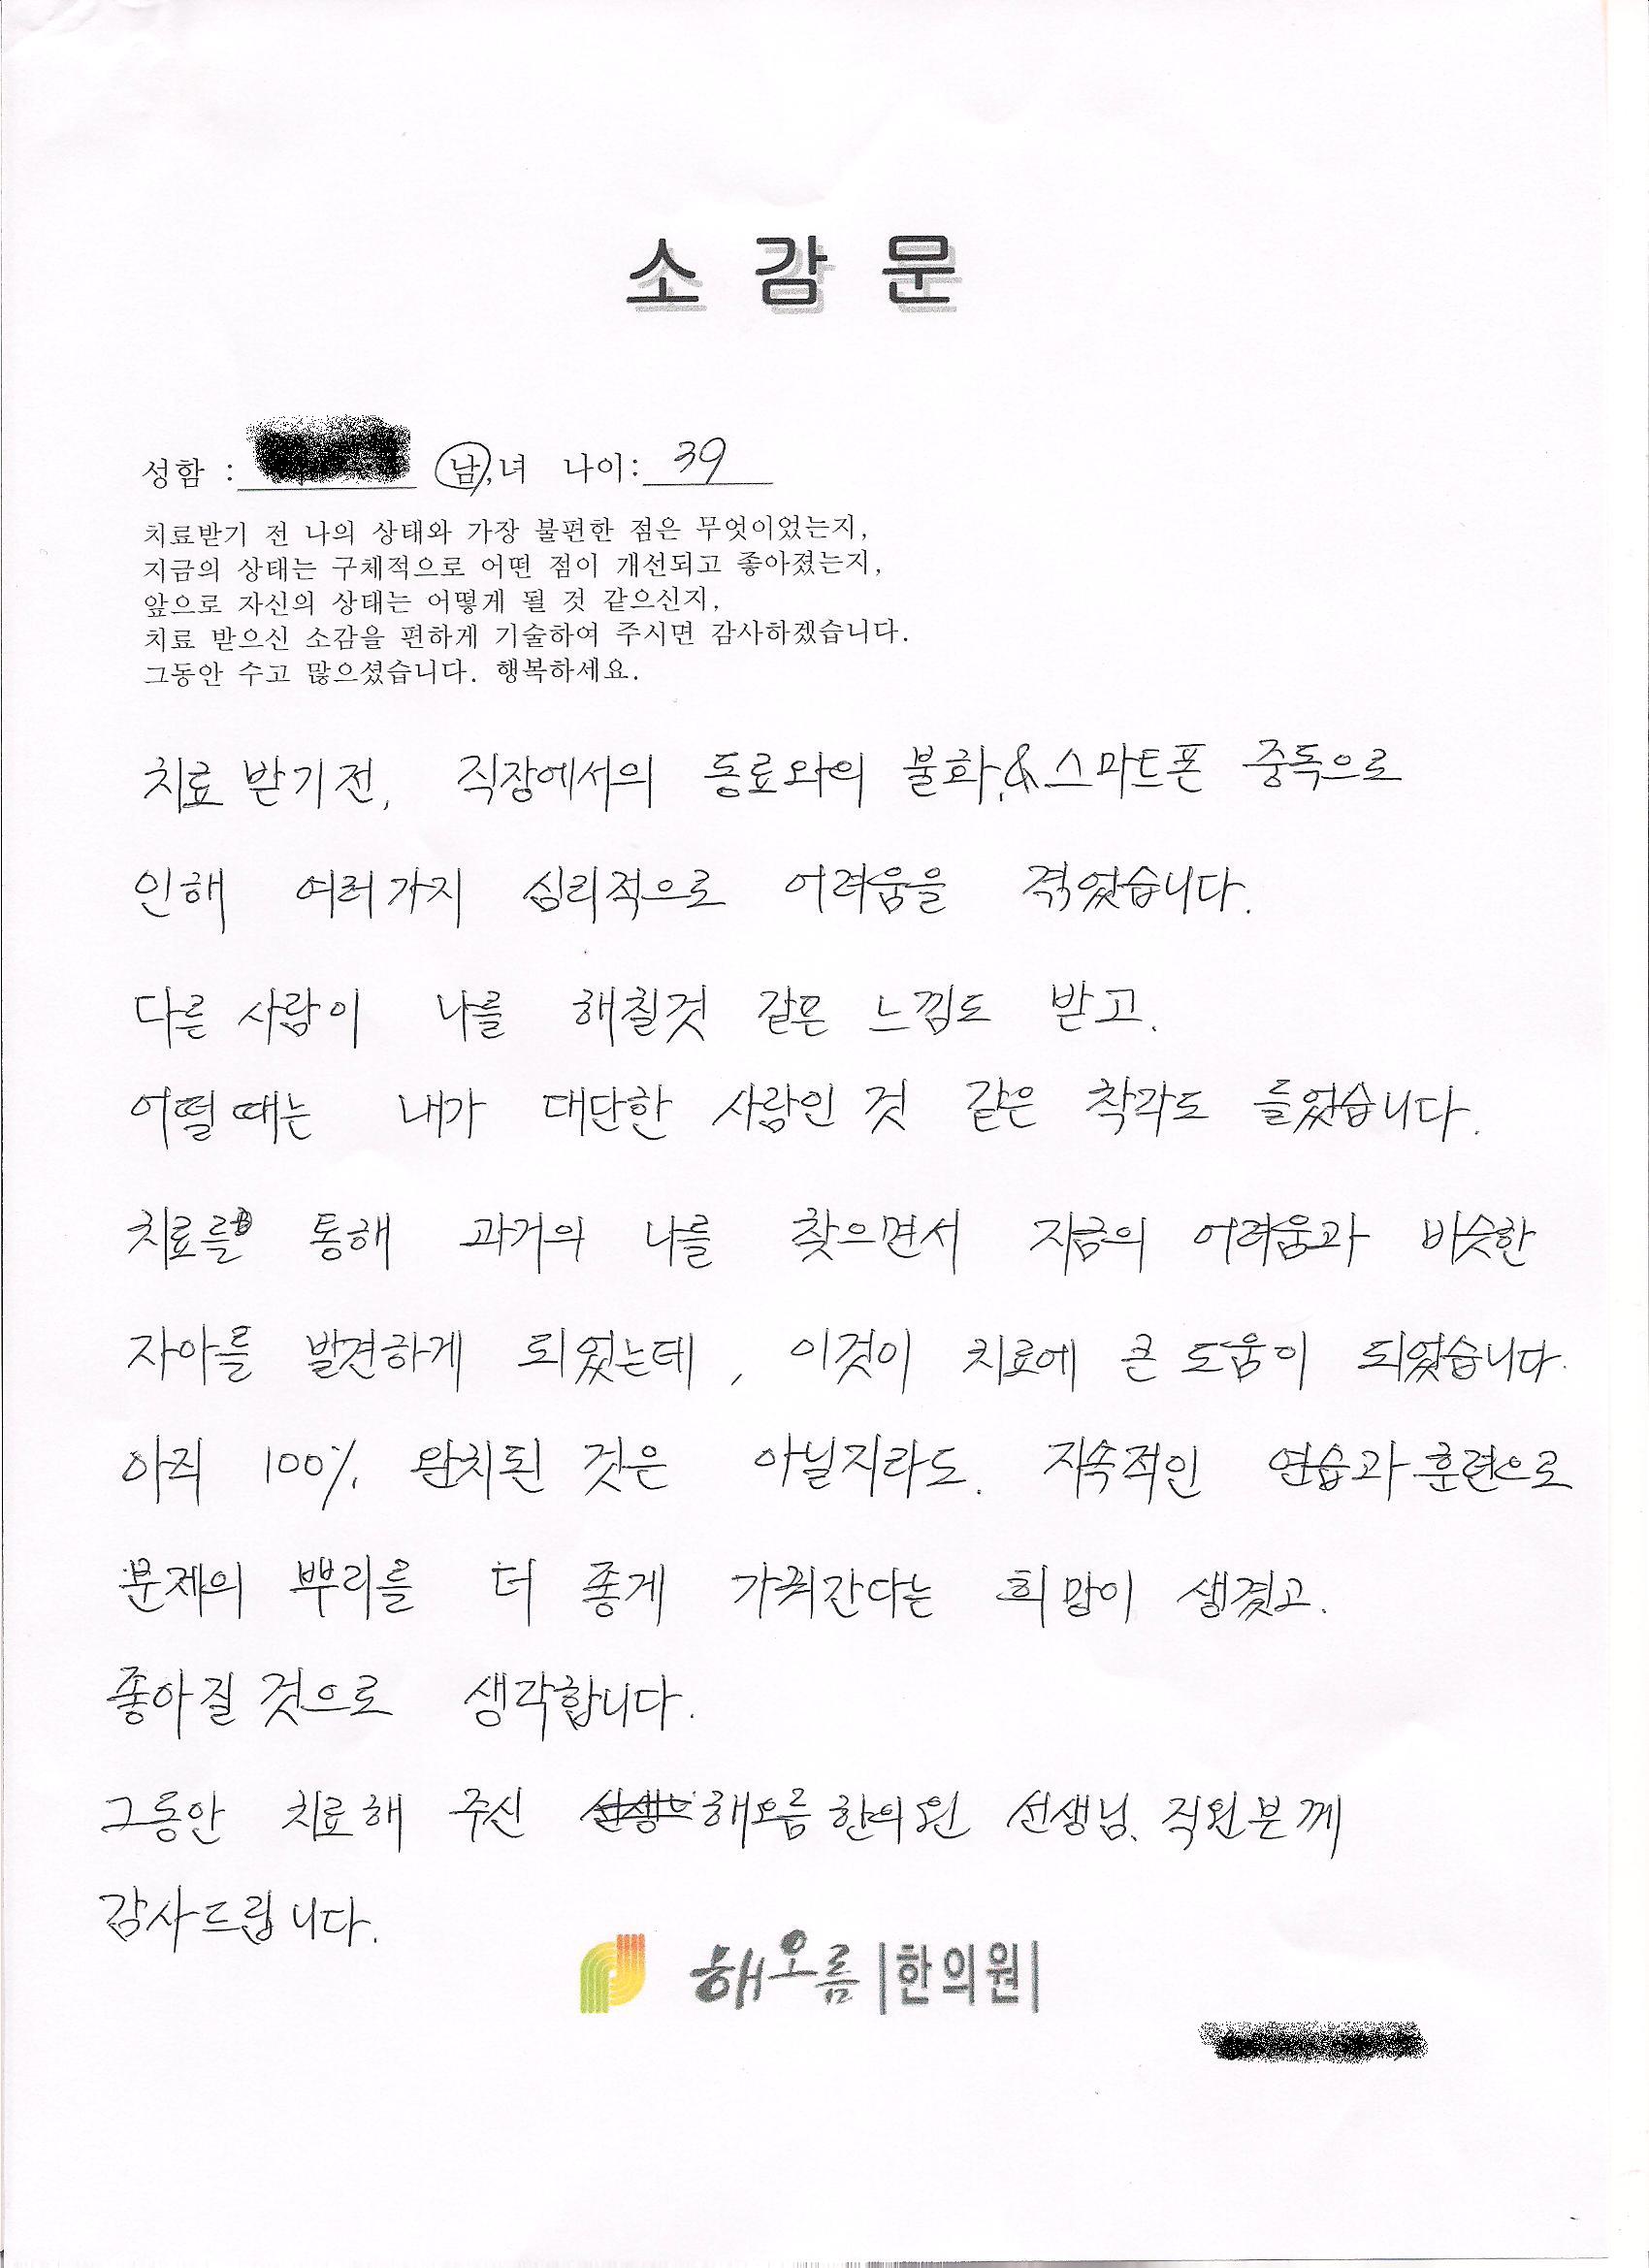 소 감 문
성함 : 남,녀 나이: 39
치료받기 전 나의 상태와 가장 불편한 점은 무엇이었는지,
지금의 상태는 구체적으로 어떤 점이 개선되고 좋아졌는지,
앞으로 자신의 상태는 어떻게 될 것 같으신지,
치료 받으신 소감을 편하게 기술하여 주시면 감사하겠습니다.
그동안 수고 많으셨습니다. 행복하세요.
치료 받기전, 직장에서의 동료와의 불화,&스마트폰 중독으로
인해 여러가지 심리적으로 어려움을 겪었습니다.
다른 사람이 나를 해칠것 같은 느낌도 받고.
어떨때는 내가 대단한 사람인 것 같은 착각도 들었습니다.
치료를 통해 과거의 나를 찾으면서 지금의 어려움과 비슷한
자아를 발견하게 되었는데, 이것이 치료에 큰 도움이 되었습니다.
아직 100% 완치된 것은 아닐지라도. 지속적인 연습과 훈련으로
문제의 뿌리를 더 좋게 가꿔간다는 희망이 생겼고.
좋아질 것으로 생각합니다.
그동안 치료해 주신 해오름 한의원 선생님, 직원분께
감사드립니다.
해오름 |한의원|